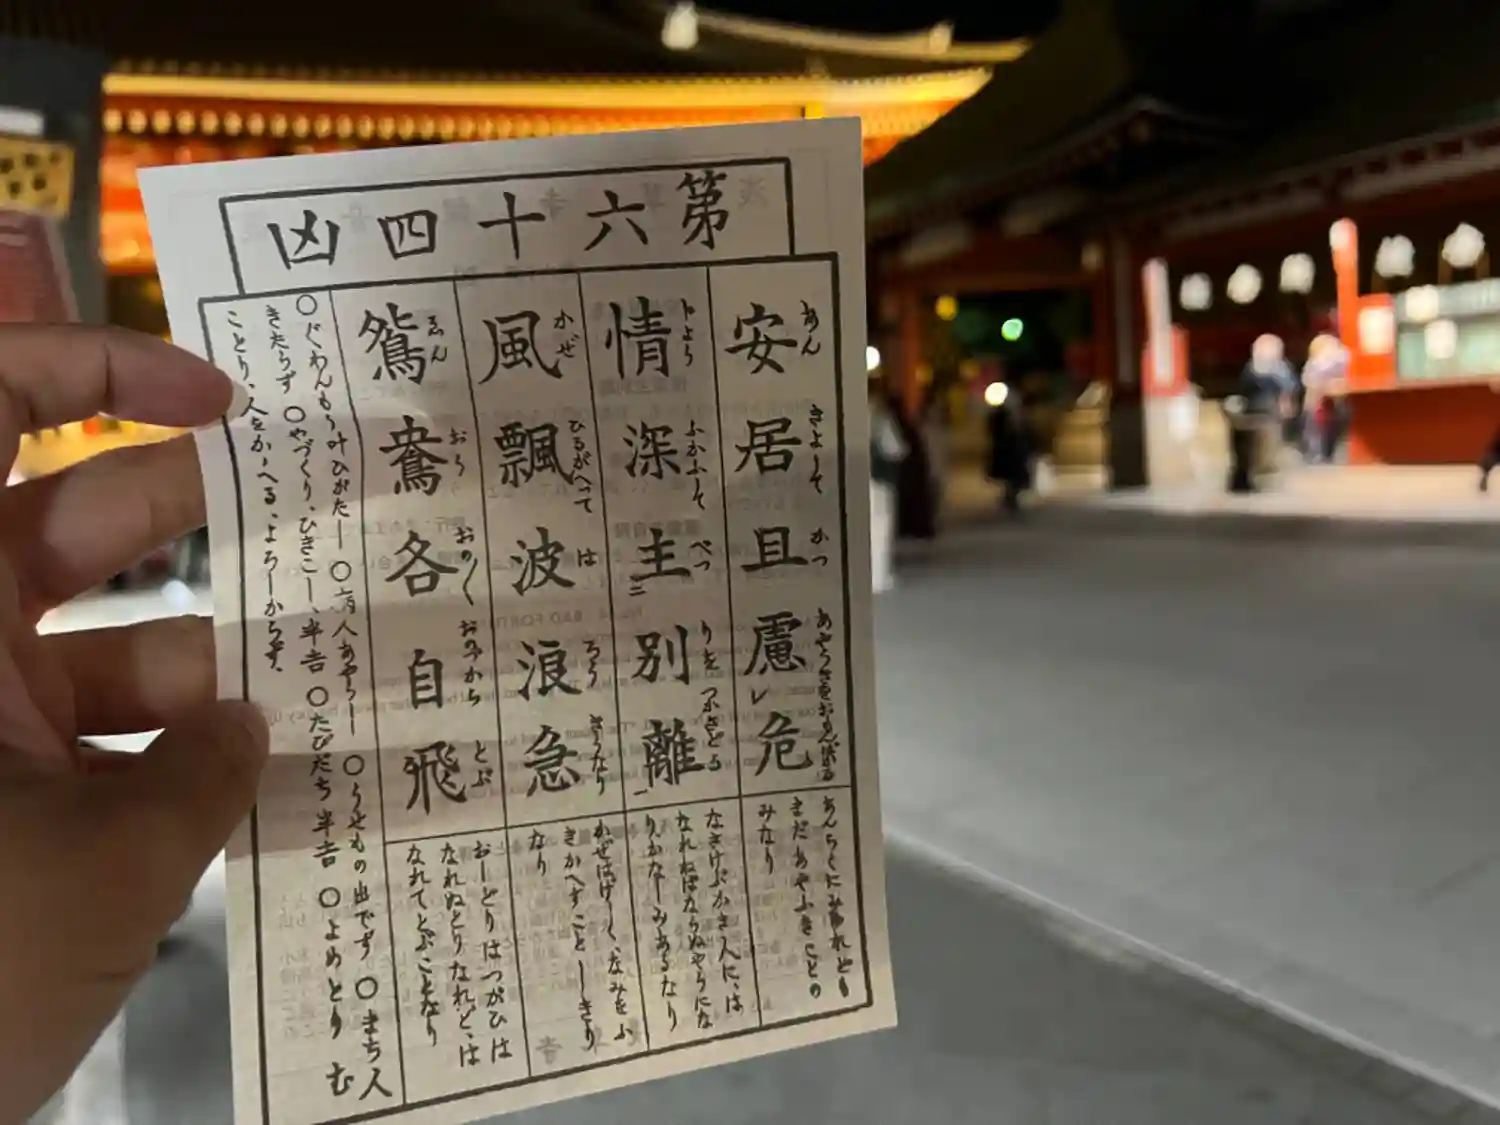 第六十四凶
安居且慮危
あん
きよして
かつ
あやうきをおもんばかる
あんらくにみゆれども
まだあやふきことの
みなり
情深主別離
じよう
ふかふして
べつ
りを
つかさどる
なさけぶかき人には
なれねばならぬやうにな
りかなしみあるなり
風飄波浪急
かぜ
ひるがへつて
は
ろう
きうなり
かぜはげしく、なみをふ
きかへすことしきり
なり
鴛鴦各自飛
ゑん
おう
おの〱
おのづから
とぶ
おしどりはつがひは
なれぬとりなれど、は
なれてとぶことなり
〇ぐわんもう叶ひがたし 〇病人あやうし 〇うせもの出です 〇まち人
きたらず 〇やづくり、ひきこし、半吉 〇たびだち半吉 〇よめとり む
ことり、人をかゝへる、よろしからず、